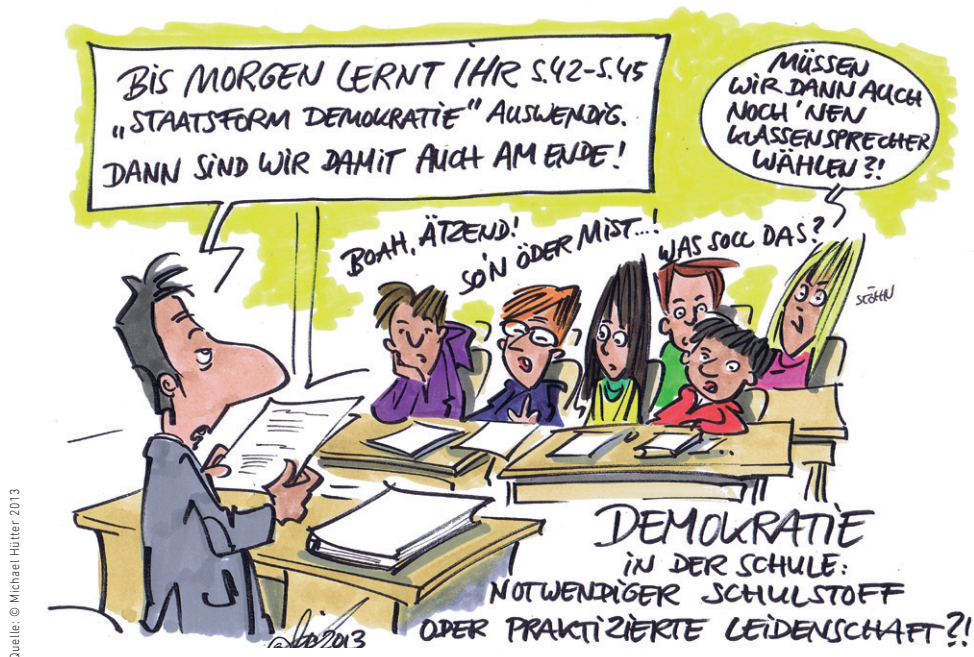 BIS MORGEN LERNT IHR S.42-S.45
„STAATSFORM DEMOKRATIE" AUSWENDIG.
DANN SIND WIR DAMIT AUCH AM ENDE!
MÜSSEN
WIR DANN AUCH
NOCH 'NEN
KLASSENSPRECHER
WÄHLEN?!
BOAH, ÄTZEND!
SO'N ÖDER MIST...!
WAS SOLL DAS?
STÖHN
DEMOKRATIE
IN DER SCHULE:
NOTWENDIGER SCHULSTOFF
ODER PRAKTIZIERTE LEIDENSCHAFT?!
2013
Quelle: © Michael Hütter 2013